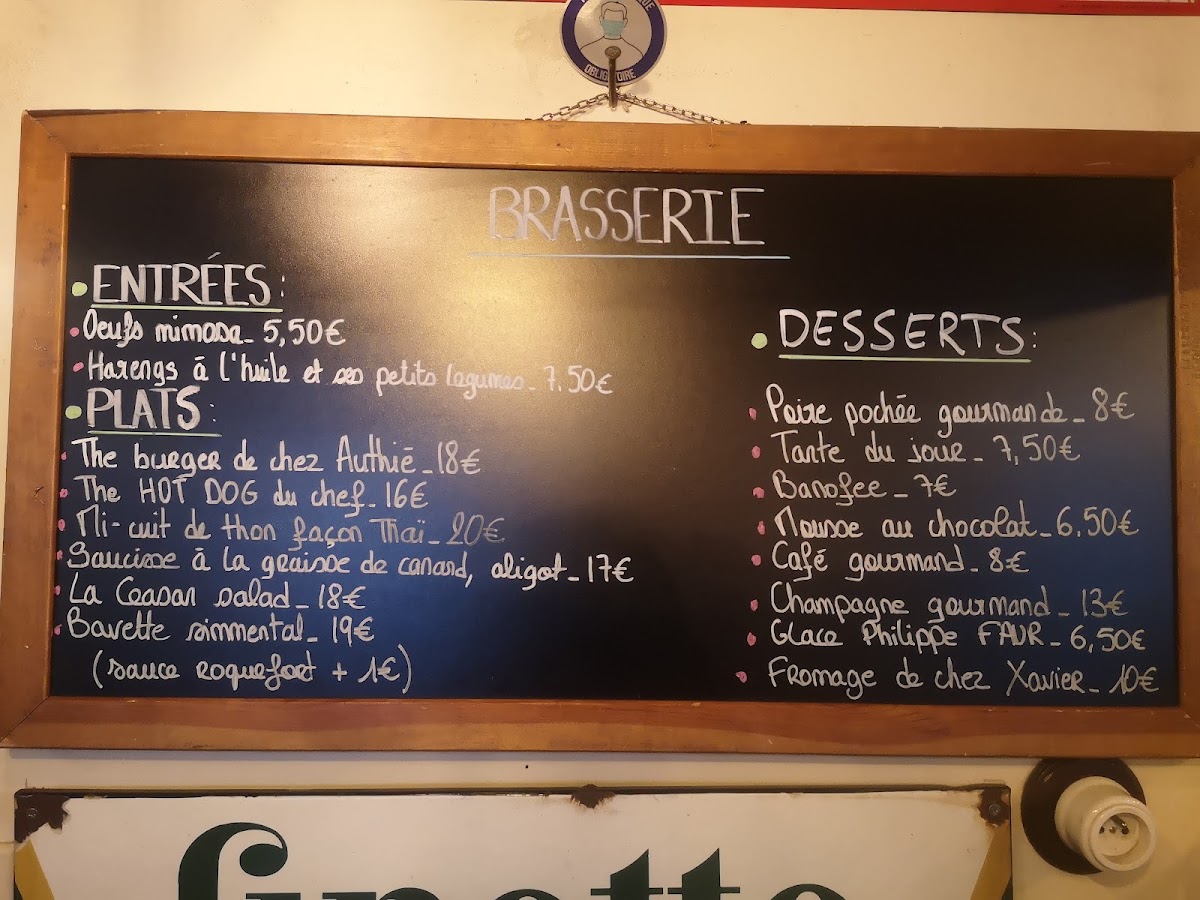 OBLIGATOIRE
BRASSERIE
ENTRÉES :
Oeufs mimosa_ 5,50€
Harengs à l'huile et ses petits legumes_ 7.50€
PLATS :
The burger de chez Authié_18€
The HOT DOG du chef_16€
Mi-cuit de thon façon Thaï_20€
Saucisse à la graisse de canard, aligot_17€
La Ceasar salad_18€
Bavette simmental_ 19€
(sauce roquefort + 1€)
DESSERTS :
Poire pochée gourmande_8€
Tarte du jour_7,50€
Banofee_7€
Mousse au chocolat_6.50€
Café gourmand_8€
Champagne gourmand_13€
Glace Philippe FAUR_6,50€
Fromage de chez Xavier_10€